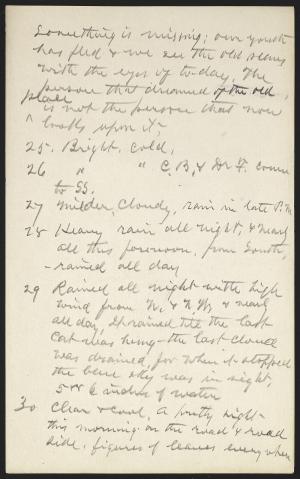 Something is missing; our youth
has fled & we see the old scenes
with the eyes of to-day. The
person that dreamed of the old
place is not the person that now
looks upon it.
25. Bright, cold.
26 " " C.B. & Dr F. come
to SS.
27 Milder, cloudy, rain in late P.M.
28 Heavy rain all night, & nearly
all this forenoon, from South,
- rained all day
29 Rained all night with high
wind from N. & N.W & nearly
all day, It rained till the last
cat was hung - the last cloud
was drained, for when it stopped
the blue sky was in sight.
5 or 6 inches of water
30 Clear & cool, A pretty sight
this morning on the road & road
side, figures of leaves everywhere